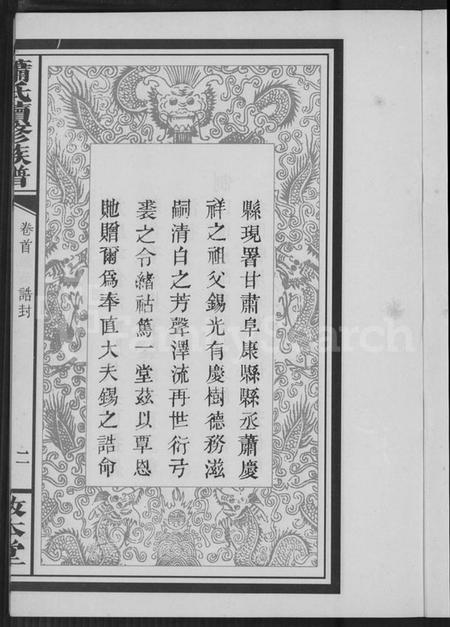 縣現署甘肅阜康縣縣丞蕭慶
祥之祖父錫光有慶樹德務滋
嗣清白之芳聲澤流再世衍弓
裘之令緒祜篤一堂茲以覃恩
貤贈爾爲奉直大夫錫之誥命
蕭氏續修族譜
卷首
誥封
二
FamilySearch